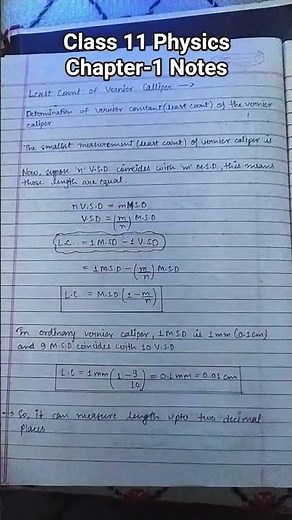 Class 11 Physics
Chapter-1 Notes
Least Count of Vernier Calliper →
Determination of vernier constant (least count) of the vernier
caliper
The smallest measurement (least count) of vernier caliper is
Now, supose 'n' V.S.D coincides with 'm' M.S.D, this means
those length are equal.
n V.S.D = m M.S.D
V.S.D = (m/n) M.S.D
L.C. = 1 M.SD - 1 V.SD
= 1 M.S.D - (m/n) M.S.D
L.C. = M.S.D (1 - m/n)
In ordinary vernier caliper, 1 M.S.D is 1mm (0.1cm)
and 9 M.S.D coincides with 10 V.S.D
L.C = 1mm (1 - 9/10) = 0.1mm = 0.01 cm
→ So, it can measure length upto two decimal
places